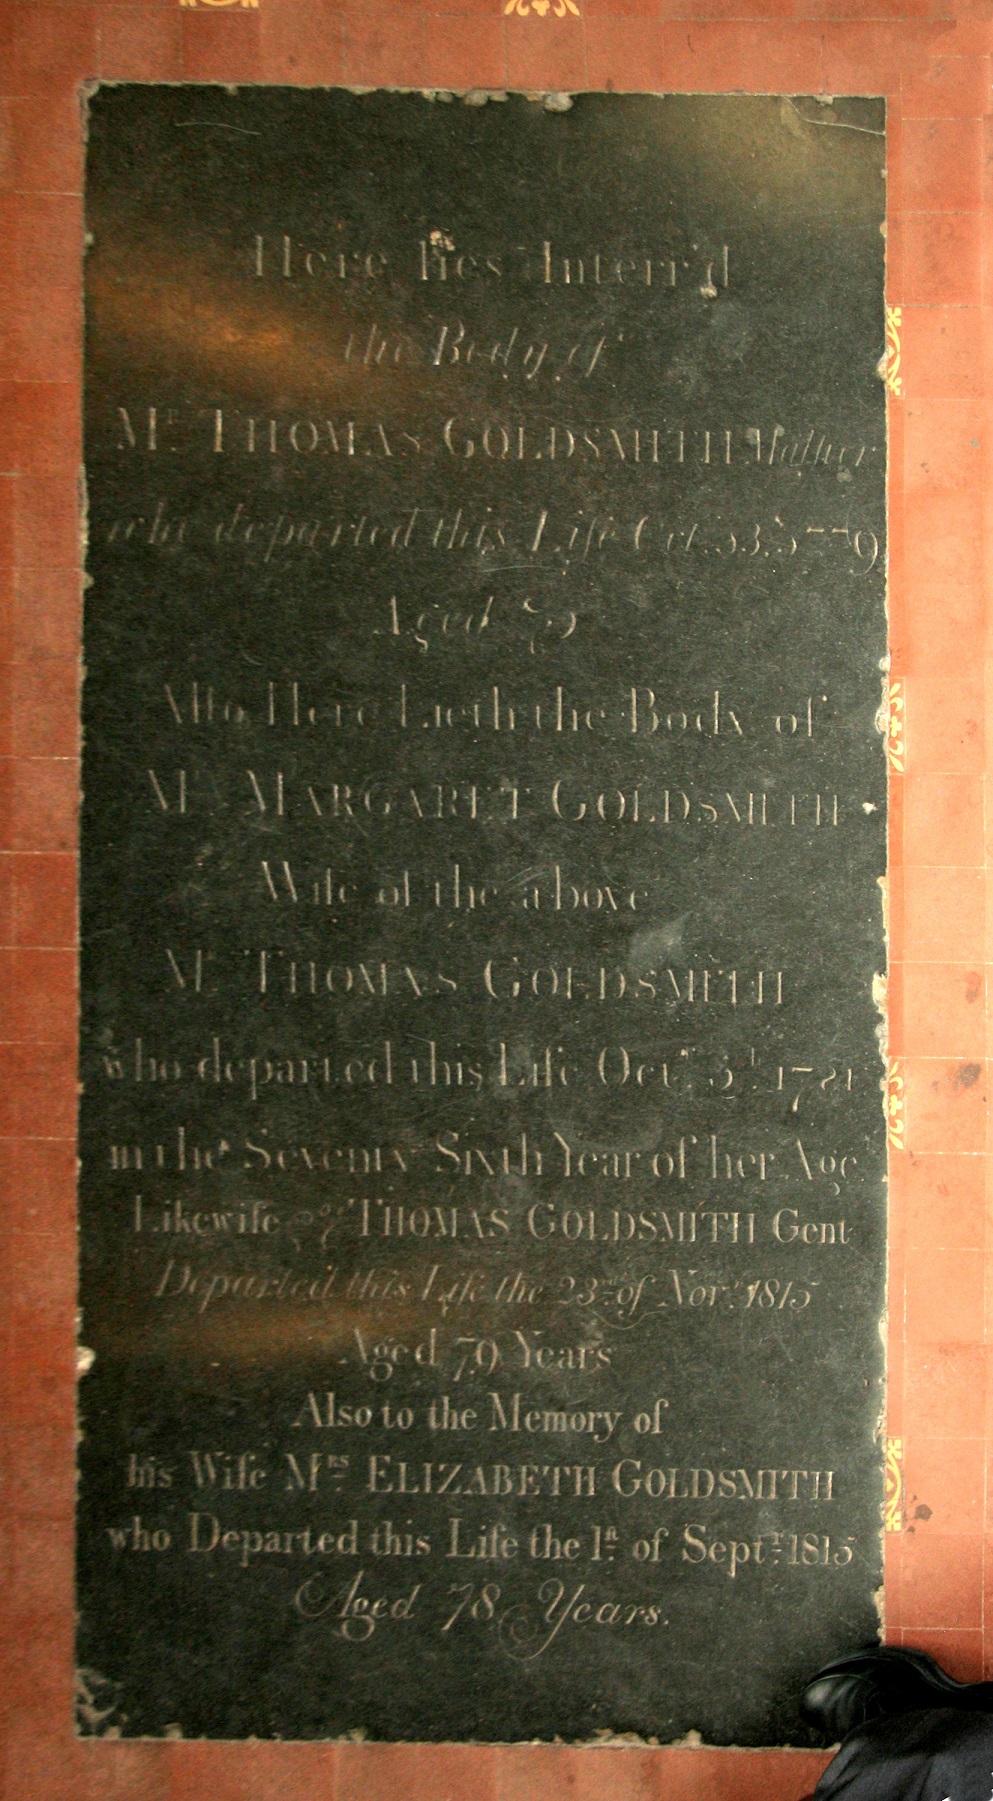 Here lies Interr'd
the Body of
Mr. THOMAS GOLDSMITH
who departed this Life Oct.
Aged
Also Here Lieth the Body of
MARGARET GOLDSMITH
Wife of the above
Mr. THOMAS GOLDSMITH
who departed this Life Octr. 1781
in the Seventy Sixth Year of her Age
Likewise THOMAS GOLDSMITH Gent
Departed this Life the 23rd of Novr. 1815
Aged 79 Years
Also to the Memory of
his Wife Mrs. ELIZABETH GOLDSMITH
who Departed this Life the 1st. of Septr. 1815
Aged 78 Years.